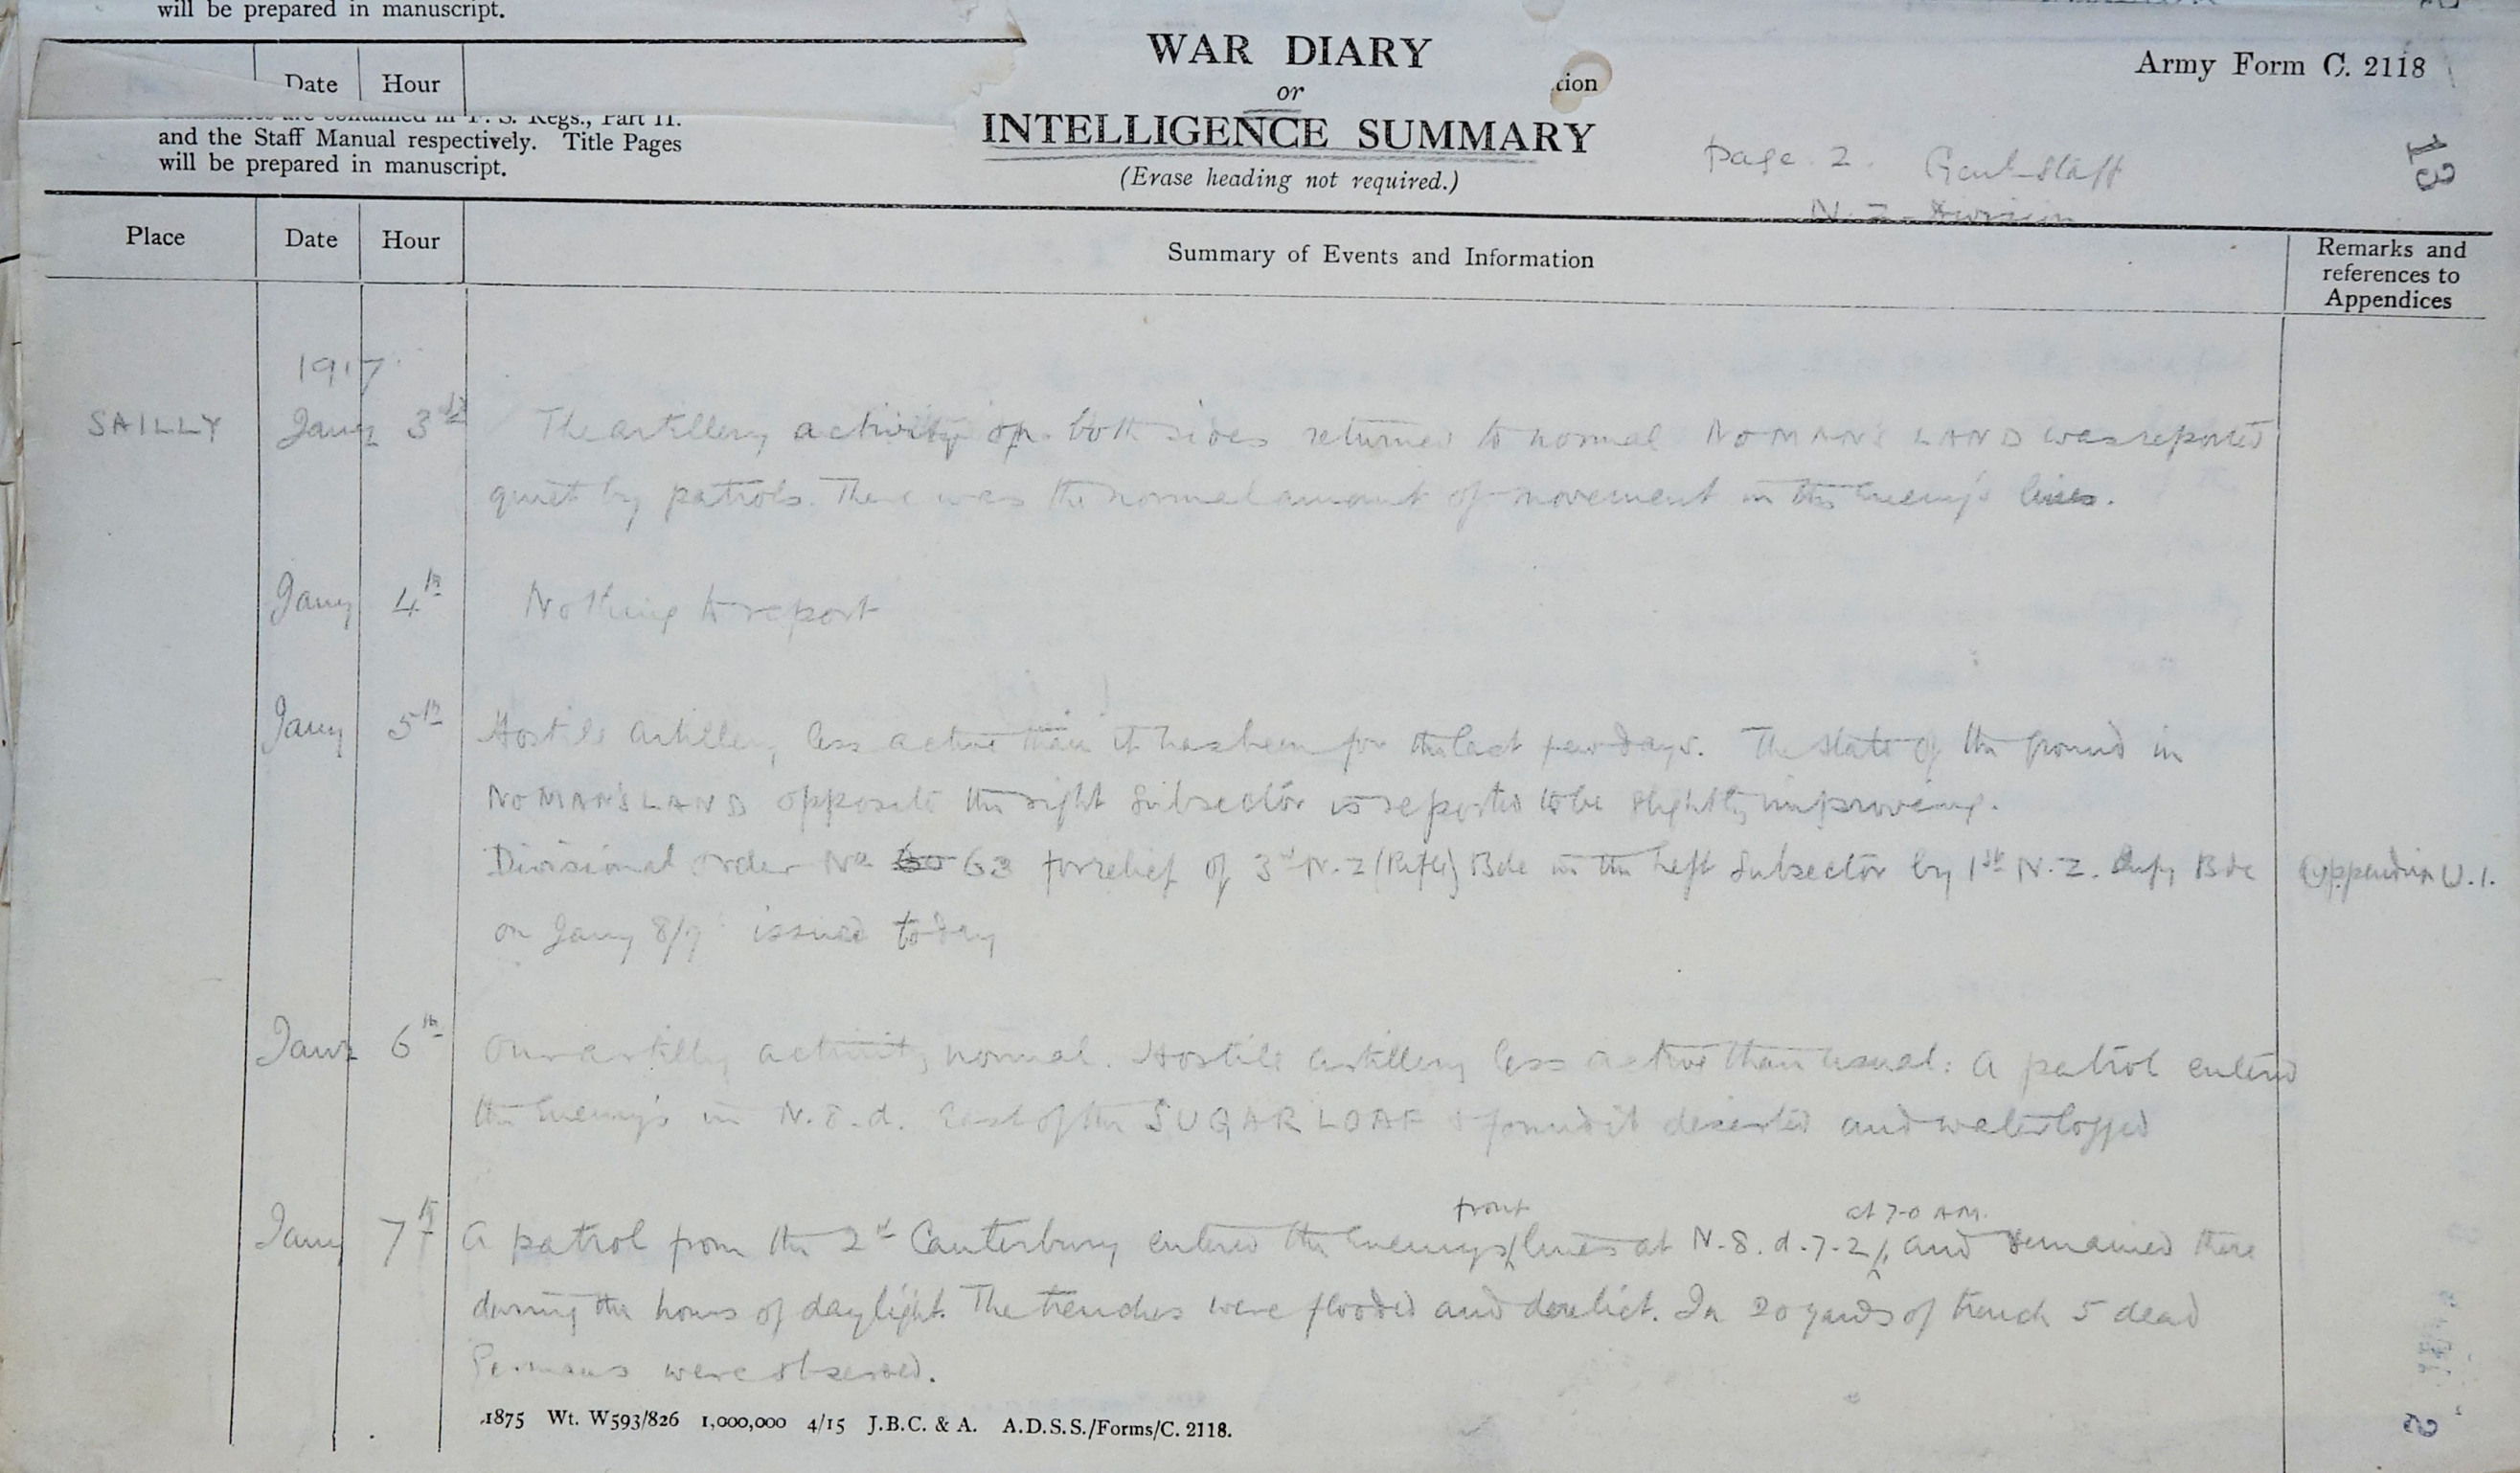 will be prepared in manuscript.
Date Hour
WAR DIARY
or
INTELLIGENCE SUMMARY
(Erase heading not required.)
Army Form C. 2118
and the Staff Manual respectively. Title Pages
will be prepared in manuscript.
Page 2. Genl Staff
N. Z. Division
13
Place Date Hour Summary of Events and Information Remarks and
references to
Appendices
1917
SAILLY Jany 3rd The artillery activity on both sides returned to normal NOMAN'S LAND was reported
quiet by patrols. There was the normal amount of movement in the Enemy's lines.
Jany 4th Nothing to report
Jany 5th Hostile artillery less active than it has been for the last few days. The state of the ground in
NOMAN'S LAND opposite the right Subsector is reported to be slightly improving.
Divisional order No 63 for relief of 3rd N.Z (Rifle) Bde in the Left Subsector by 1st N.Z. Infy Bde Appendix U.1.
on Jany 8/9 issued today
Jany 6th Our artillery activity normal. Hostile artillery less active than usual: A patrol entered
the Enemy's in N.8.d. East of the SUGAR LOAF & found it deserted and waterlogged
front at 7-0 AM.
Jany 7th A patrol from the 2nd Canterbury entered the Enemy's lines at N.8.d.7.2½ and remained there
during the hours of daylight. The trenches were flooded and derelict. In 20 yards of trench 5 dead
Germans were observed.
1875 Wt. W593/826 1,000,000 4/15 J.B.C. & A. A.D.S.S./Forms/C. 2118.